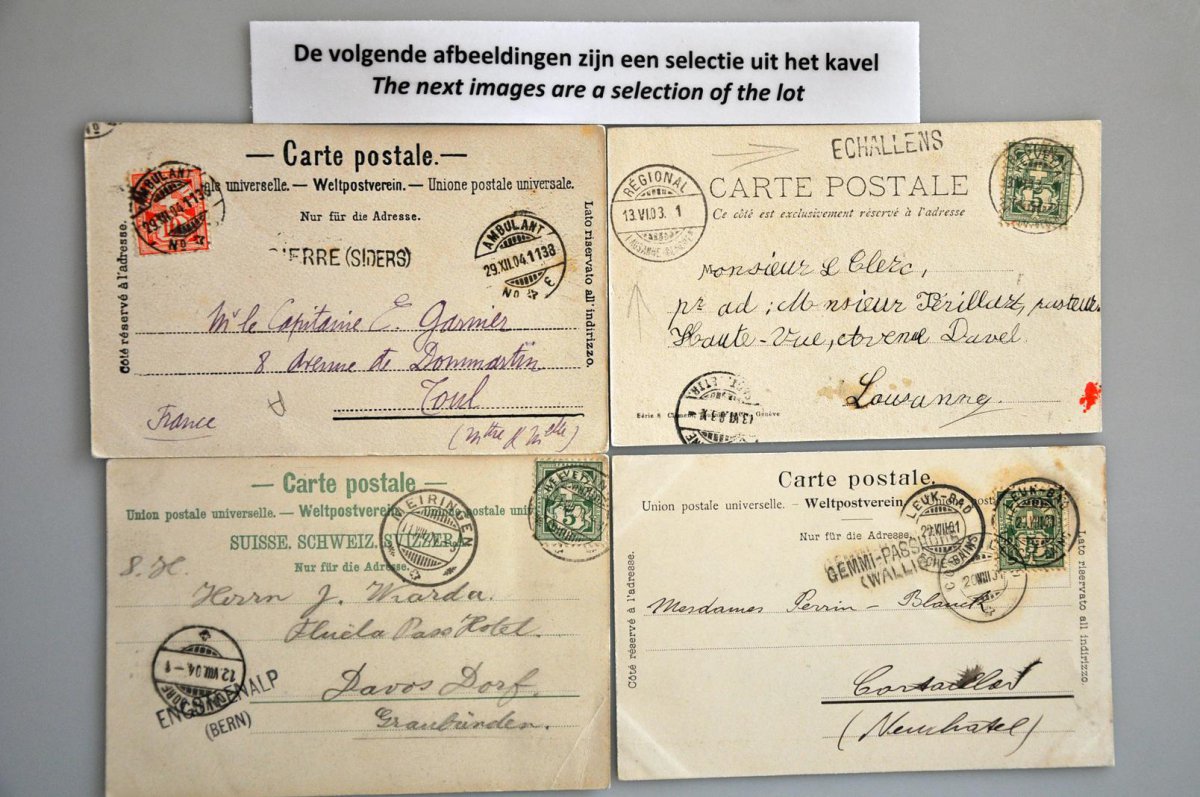 De volgende afbeeldingen zijn een selectie uit het kavel
The next images are a selection of the lot
No
— Carte postale. —
AMBULANT
29.XII.04.11 38
No
ale universelle. — Weltpostverein. — Unione postale universale.
Nur für die Adresse.
Côté réservé à l'adresse.
Lato riservato all' indirizzo.
IERRE (SIDERS)
AMBULANT
29.XII.04.11 38
No 3
Mr le Capitaine E. Garnier
8 avenue de Dommartin
Toul
France
ECHALLENS
RÉGIONAL
13.VI.03. 1
CARTE POSTALE
Ce côté est exclusivement réservé à l'adresse
5
Monsieur Le Clerc,
pr ad: Monsieur Périllard, pasteur
Haute-Vue, Avenue Davel.
Lausanne.
Série 8
Genève
— Carte postale —
Union postale universelle. — Weltpostverein. — Unione postale univ
SUISSE. SCHWEIZ. SVIZZERA.
Nur für die Adresse.
MEIRINGEN
5
Herrn J. Wiarda.
Fluëla Pass Hotel.
Davos Dorf.
Graubünden.
12.VIII.04-1
DORF
ENGSTLENALP
(BERN)
Carte postale.
Union postale universelle. — Weltpostverein. — Unione
Nur für die Adresse
LEUK-BAD
LEUK-BAD
GEMMI-PASSHÖHE
(WALLIS)
20.VIII.01
Côté réservé à l'adresse.
Lato riservato all indirizzo.
Mesdames Perrin-Blanck
Cortaillod
(Neuchatel)